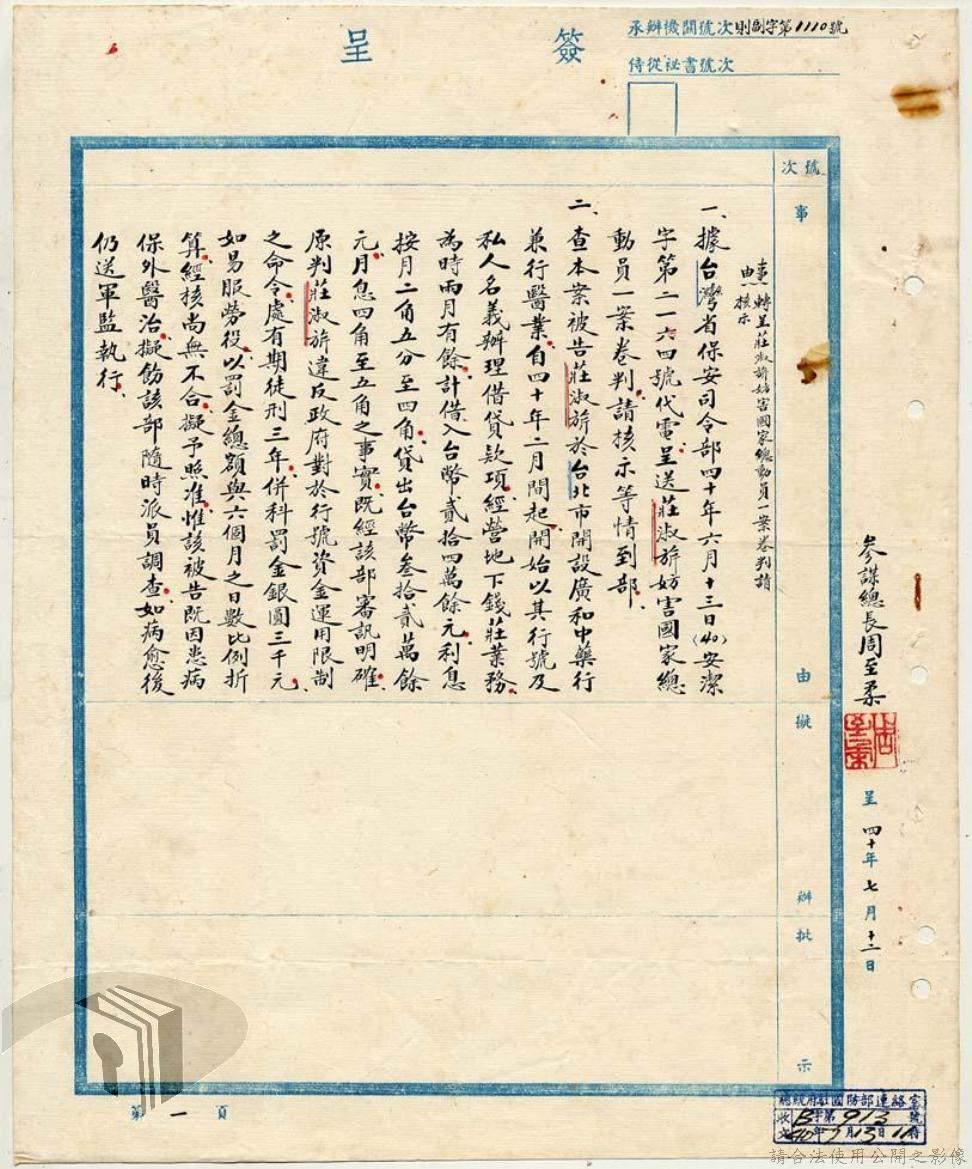 簽呈
承辦機關號次則副字第1110號
侍從祕書號次
號次
事由
擬辦
批示
事由 轉呈莊淑旂妨害國家總動員一案卷判請
核示
一、據台灣省保安司令部四十年六月十三日(40)安潔
字第二一六四號代電呈送莊淑旂妨害國家總
動員一案卷判請核示等情到部
二、查本案被告莊淑旂於台北市開設廣和中藥行
兼行醫業自四十年二月間起開始以其行號及
私人名義辦理借貸款項經營地下錢莊業務
為時兩月有餘計借入台幣貳拾四萬餘元利息
按月二角五分至四角貸出台幣叁拾貳萬餘
元月息四角至五角之事實既經該部審訊明確
原判莊淑旂違反政府對於行號資金運用限制
之命令處有期徒刑三年併科罰金銀圓三千元
如易服勞役以罰金總額與六個月之日數比例折
算經核尚無不合擬予照准惟該被告既因患病
保外醫治擬飭該部隨時派員調查如病愈後
仍送軍監執行
參謀總長周至柔
周至柔
呈 四十年七月十二日
第一頁
總統府駐國防部連絡室
收文 B字第913號
40年7月13日11時
請合法使用公開之影像